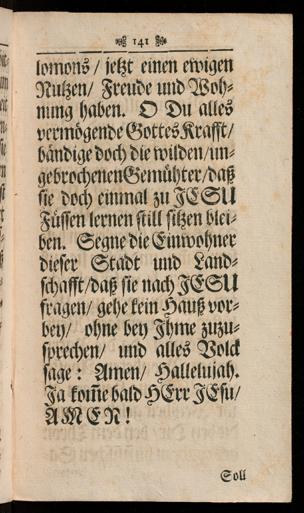 141
lomons / jetzt einen ewigen
Nutzen / Freude und Woh-
nung haben. O Du alles
vermögende Gottes Krafft /
bändige doch die wilden / un-
gebrochenen Gemühter / daß
sie doch einmal zu JESU
Füssen lernen still sitzen blei-
ben. Segne die Einwohner
dieser Stadt und Land-
schafft / daß sie nach JESU
fragen / gehe kein Hauß vor-
bey / ohne bey Ihme zuzu-
sprechen / und alles Volck
sage : Amen / Hallelujah.
Ja kom̃e bald HErr JEsu /
AMEN!
Soll